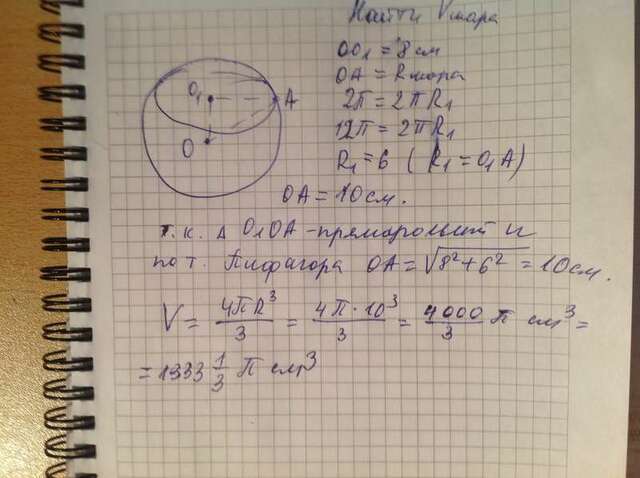 Найти Vшара
OO₁ = 8 см
OA = Rшара
2π = 2πR₁
12π = 2πR₁
R₁ = 6 (R₁ = O₁A)
OA = 10 см.
O₁
A
O
т.к. Δ O₁OA - прямоугольн и
по т. Пифагора OA = √8²+6² = 10 см.
V = 4πR³/3 = 4π·10³/3 = 4000/3 π см³ =
= 1333 1/3 π см³